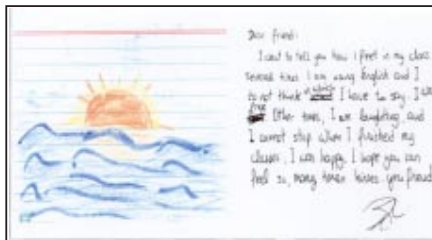 Dear friend:
I want to tell you how I feel in my class
Several times I am using English and I
do not think in which I have to say. I am
free. Other times, I am laughing and
I cannot stop when I finished my
classes, I am happy. I hope you can
feel so, many times kisses you friend